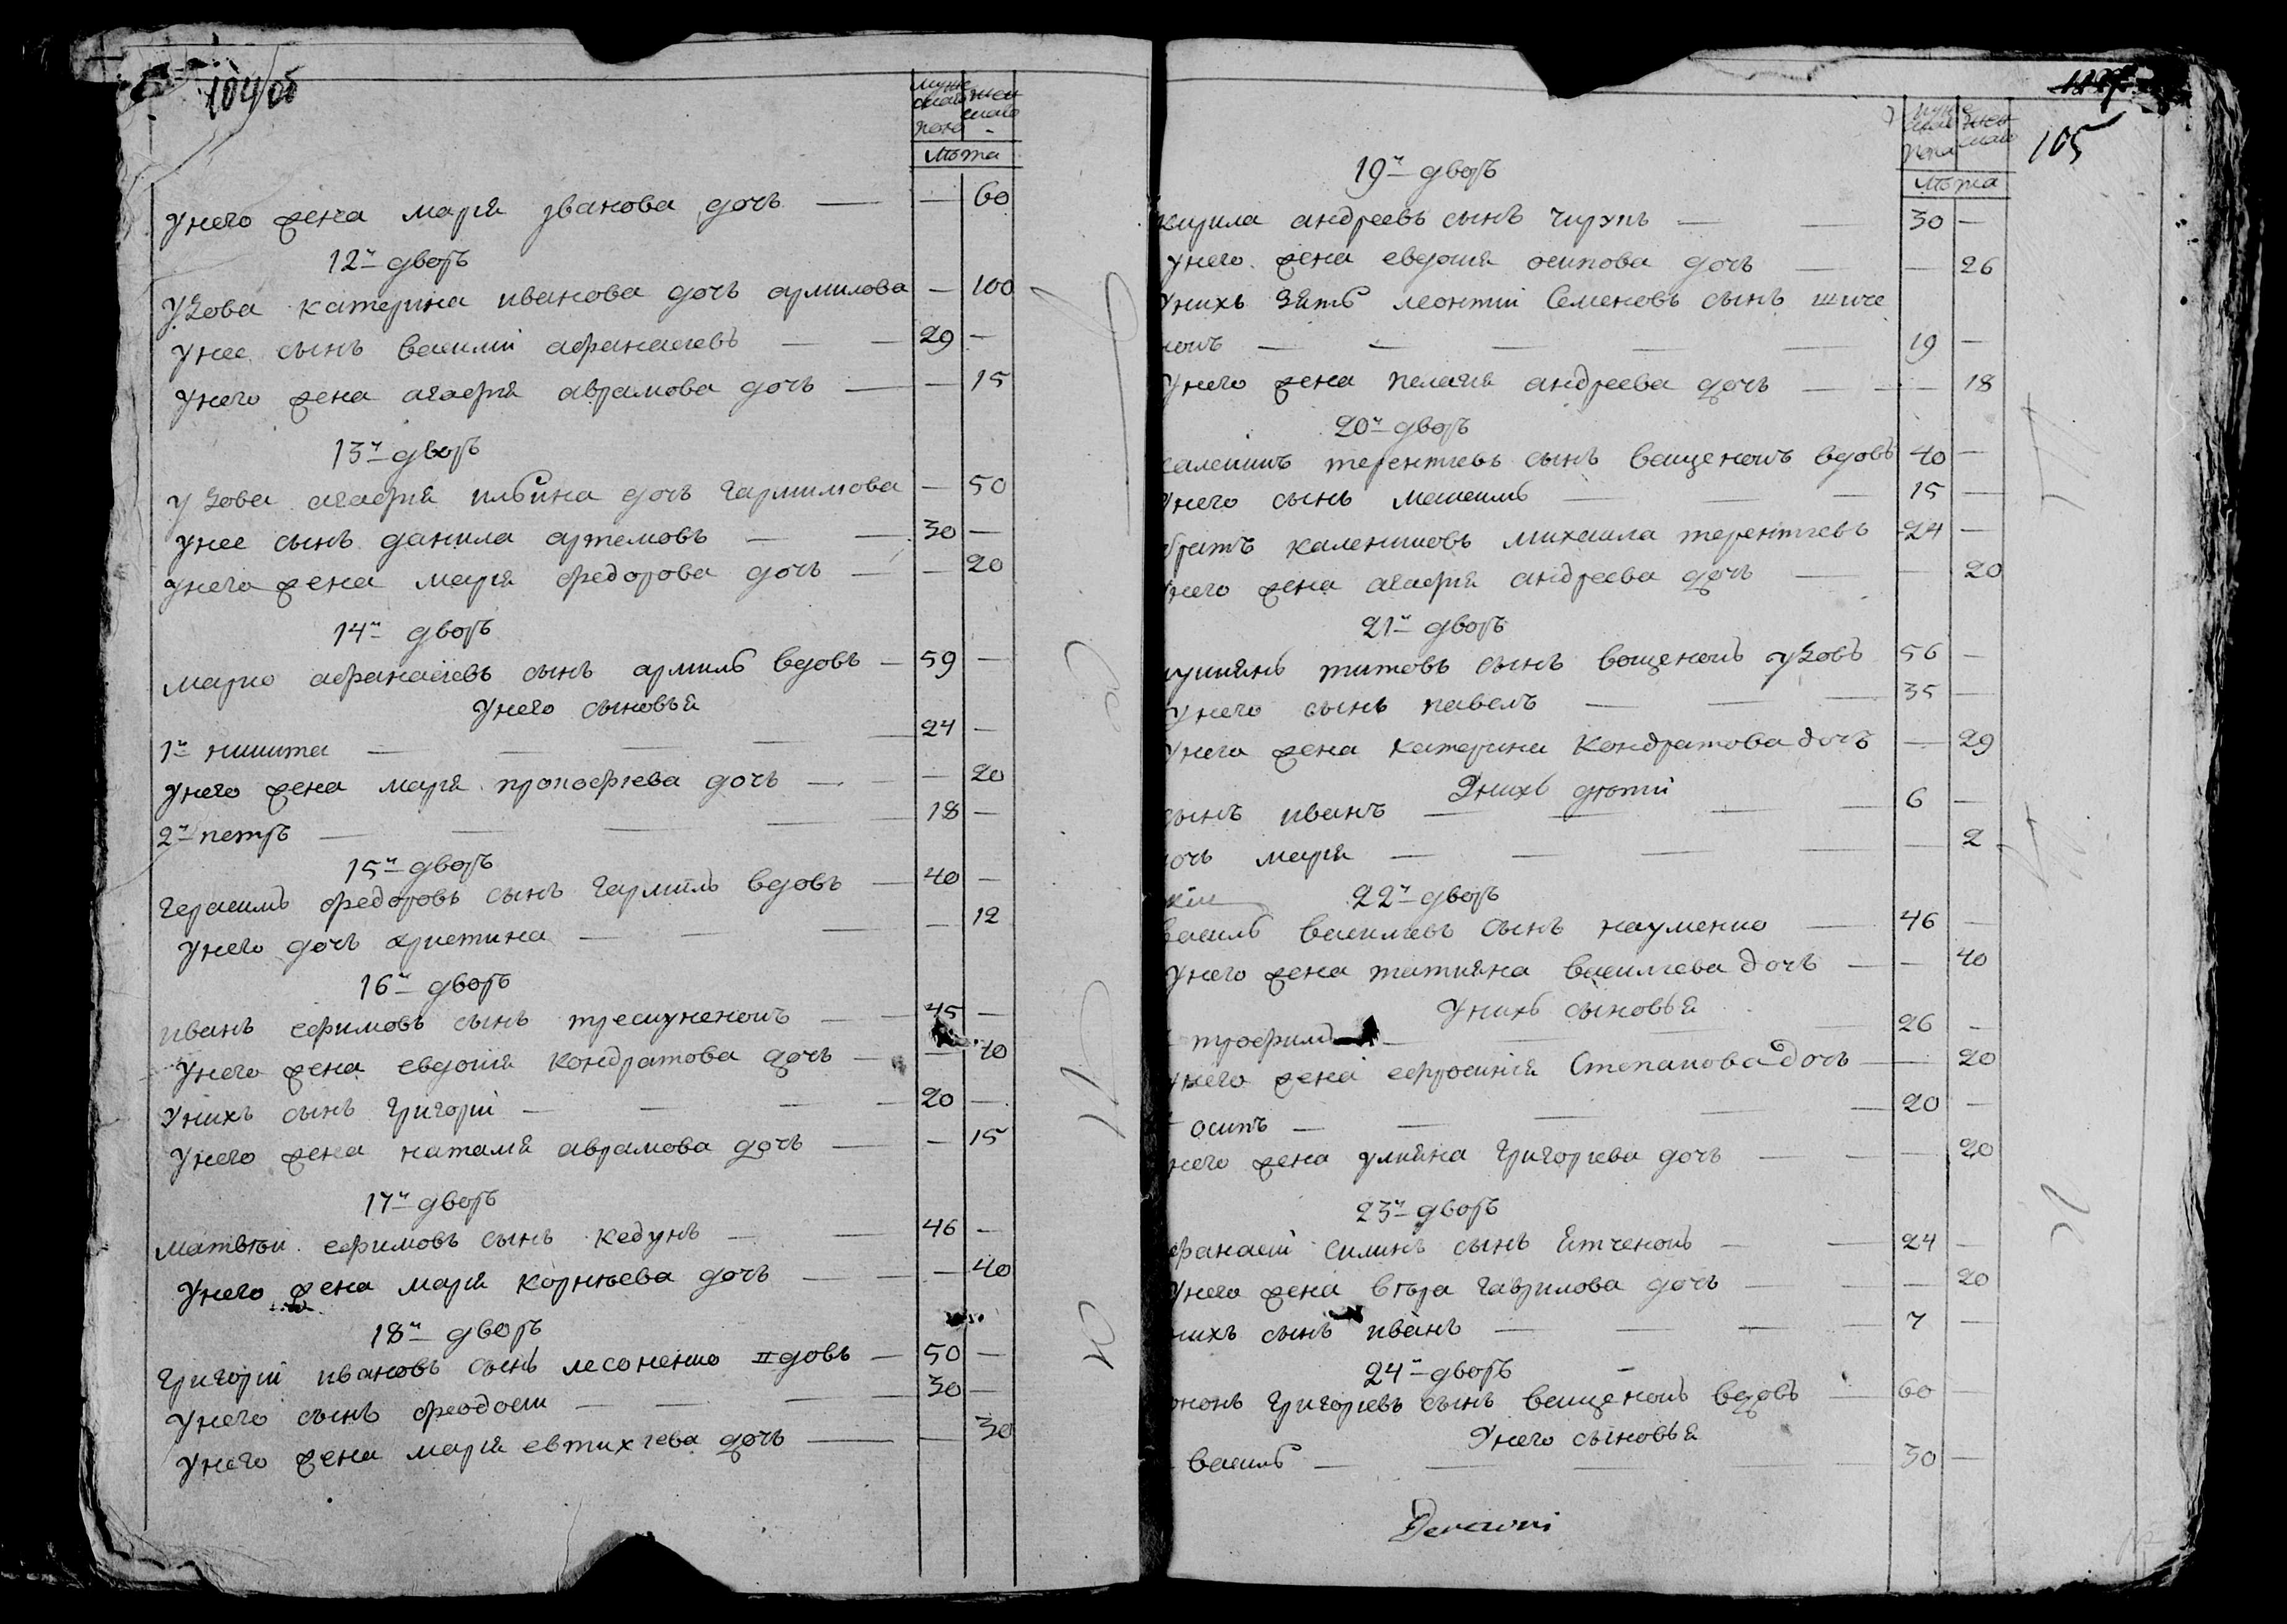 104об
мужеска пола
женска
лѣта
У него жена мария иванова дочь — — 60
12й дворъ
Удова катерина иванова дочь ярмилова — 100
У нее сынъ василий афанасиевъ — 29 —
У него жена агафия аврамова дочь — — 15
13й дворъ
Удова агафия ильина дочь гармилова — 50
У нее сынъ данила артемовъ — 30 —
У него жена мария федорова дочь — — 20
14й дворъ
марко афанасиевъ сынъ ярмиль вдовъ — 59 —
У него сыновья
1й никита — 24 —
У него жена мария прокофиева дочь — — 20
2й петръ — 18 —
15й дворъ
Герасимъ федоровъ сынъ гармиль вдовъ — 40 —
У него дочь христина — — 12
16й дворъ
иванъ ефимовъ сынъ трескуненокъ — 45 —
У него жена евдокия кондратова дочь — — 40
У нихъ сынъ григорий — 20 —
У него жена наталия аврамова дочь — — 15
17й дворъ
матвѣй ефимовъ сынъ кедунъ — 46 —
У него жена мария корнѣева дочь — — 40
18й дворъ
Григорий ивановъ сынъ лесоненко вдовъ — 50 —
У него сынъ феодосий — 30 —
У него жена мария евтихиева дочь — — 30
105
мужеска пола
женска
лѣта
19й дворъ
кирила андреевъ сынъ чирухъ — 30 —
У него жена евдокия осипова дочь — — 26
У нихъ зять леонтий Семеновъ сынъ шиче
нокъ — 19 —
У него жена пелагия андреева дочь — — 18
20й дворъ
каленикъ терентиевъ сынъ ващенокъ вдовъ 40 —
У него сынъ максимъ — 15 —
братъ калениковъ михаила терентиевъ 24 —
него жена агафия андреева дочь — — 20
21й дворъ
лукиянъ титовъ сынъ ващенокъ удовъ 56 —
У него сынъ павелъ — 35 —
У него жена катерина Кондратова дочь — 29
У нихъ дѣти
сынъ иванъ — 6 —
очь мария — — 2
22й дворъ
василь василиевъ сынъ науменко — 46 —
У него жена татияна василиева дочь — — 40
У нихъ сыновья
трофимъ — 26 —
У него жена ефросиния Степанова дочь — — 20
осипъ — 20 —
него жена улияна григориева дочь — — 20
23й дворъ
афанасий силинъ сынъ ятченокъ — 24 —
У него жена вѣра гаврилова дочь — — 20
нихъ сынъ иванъ — 7 —
24й дворъ
ононъ григориевъ сынъ ващенокъ вдовъ — 60
У него сыновья
василь — 30 —